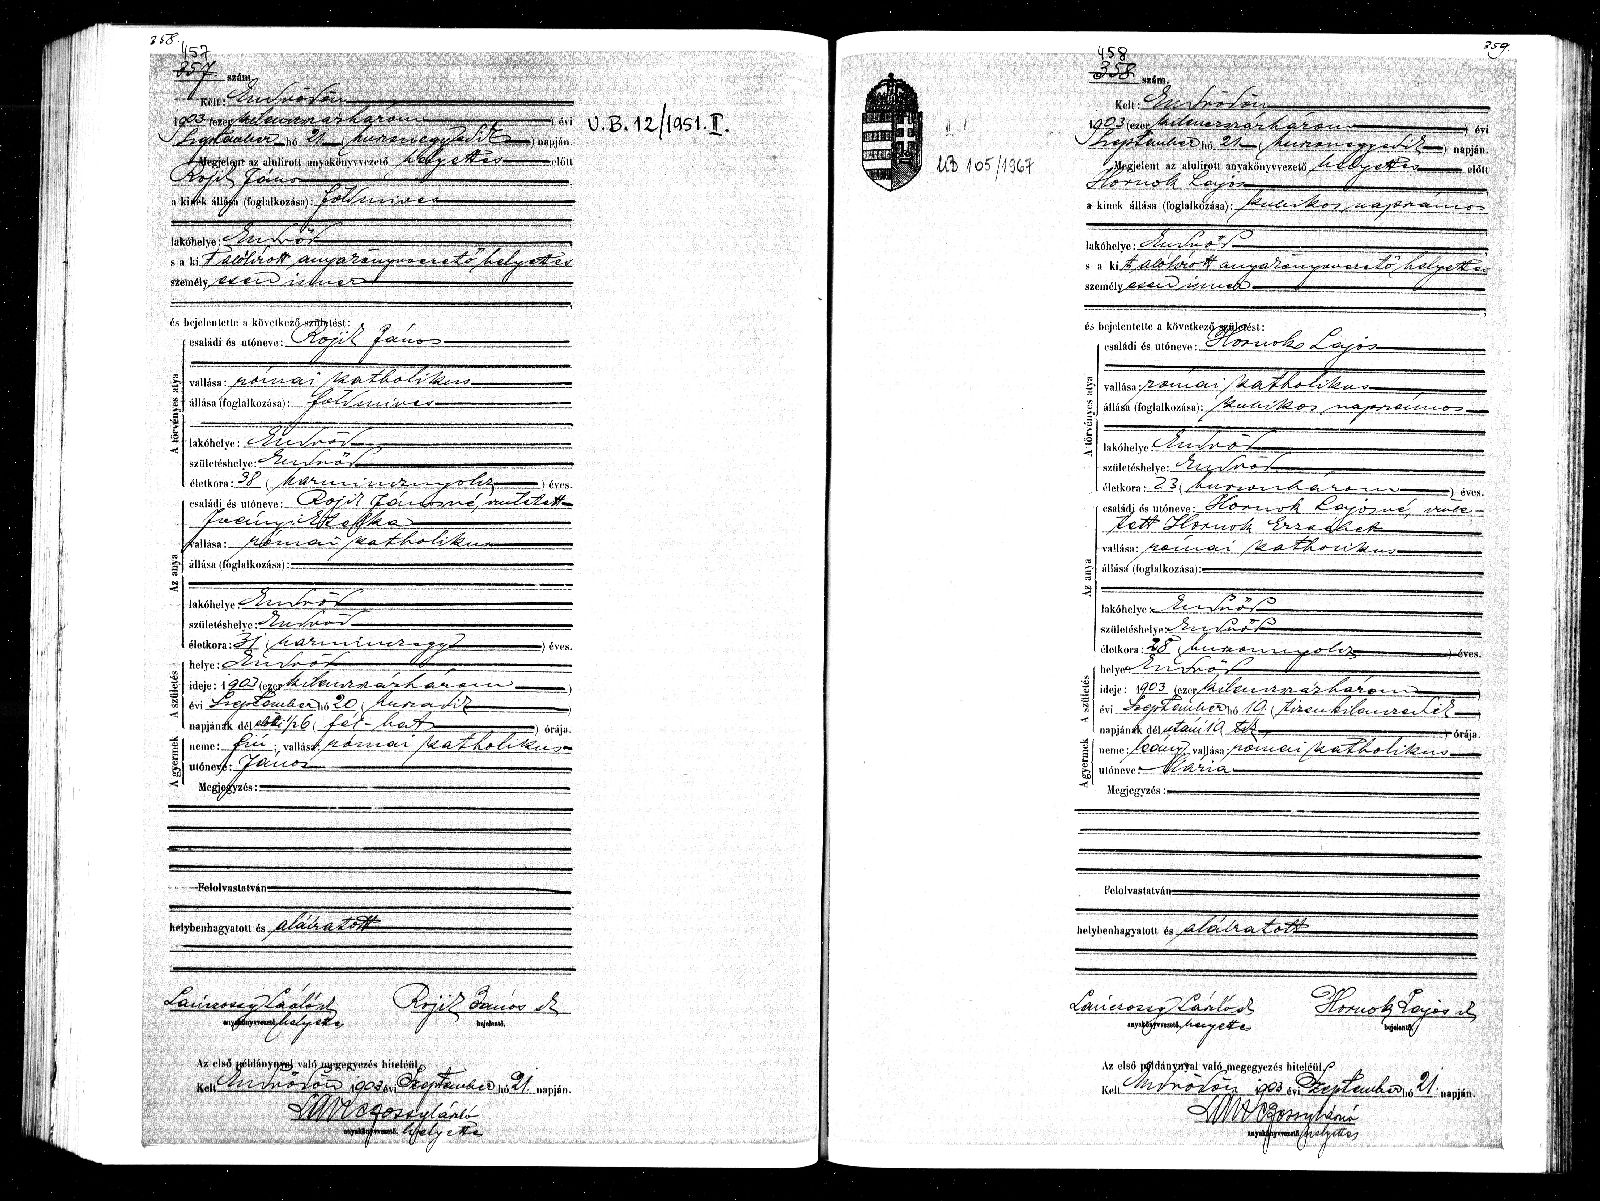 358.
457
357 szám.
Kelt: Endrődön
1903 (ezer kilenczszázhárom ) évi
Szeptember hó 21 huszonegyedik ) napján.
Megjelent az alulirott anyakönyvvezető helyettes előtt
Rojik János
a kinek állása (foglalkozása): földmives
lakóhelye: Endrőd
s a kit alólirott anyakönyvvezető helyettes
személyesen ismer
és bejelentette a következő születést:
A törvényes atya
családi és utóneve: Rojik János
vallása: római katholikus
állása (foglalkozása): földmives
lakóhelye: Endrőd
születéshelye: Endrőd
életkora: 38 ( harmincznyolcz ) éves.
Az anya
családi és utóneve: Rojik Jánosné, született
Iványi
vallása: római katholikus
állása (foglalkozása):
lakóhelye: Endrőd
születéshelye: Endrőd
életkora: 31 ( harminczegy ) éves.
A születés
helye: Endrőd
ideje: 1903 (ezer kilenczszázhárom )
évi Szeptember hó 20 ( huszadik
napjának dél előtti 1/26 ( fél-hat ) órája.
A gyermek
neme: fiú; vallása: római katholikus
utóneve: János
Megjegyzés:
Felolvastatván
helybenhagyatott és aláiratott
Rojik János sk
anyakönyvvezető helyettes bejelentő.
Az első példánynyal való megegyezés hiteléül
Kelt Endrődön 1903 évi Szeptember hó 21. napján.
anyakönyvvezető helyettes
U.B. 12/1951. II.
359.
458
358 szám.
UB 105/1967
Kelt: Endrődön
1903 (ezer kilenczszázhárom ) évi
Szeptember hó 21 ( huszonegyedik ) napján.
Megjelent az alulirott anyakönyvvezető helyettes előtt
Hornok Lajos
a kinek állása (foglalkozása): kubikos napszámos
lakóhelye: Endrőd
s a kit alólirott anyakönyvvezető helyettes
személyesen ismer
és bejelentette a következő születést:
A törvényes atya
családi és utóneve: Hornok Lajos
vallása: római katholikus
állása (foglalkozása): kubikos napszámos
lakóhelye: Endrőd
születéshelye: Endrőd
életkora: 23 ( huszonhárom ) éves.
Az anya
családi és utóneve: Hornok Lajosné, szüle-
tett Hornok Erzsébet
vallása: római katholikus
állása (foglalkozása):
lakóhelye: Endrőd
születéshelye: Endrőd
életkora: 28 ( huszonnyolcz ) éves.
A születés
helye: Endrőd
ideje: 1903 (ezer kilenczszázhárom )
évi Szeptember hó 19. ( tizenkilenczedik
napjának dél utáni 10 ( tiz ) órája.
A gyermek
neme: leány vallása: római katholikus
utóneve: Mária
Megjegyzés:
Felolvastatván
helybenhagyatott és aláiratott
Hornok Lajos sk
anyakönyvvezető helyettes bejelentő.
Az első példánynyal való megegyezés hiteléül
Kelt Endrődön 1903 évi Szeptember hó 21. napján.
anyakönyvvezető helyettes